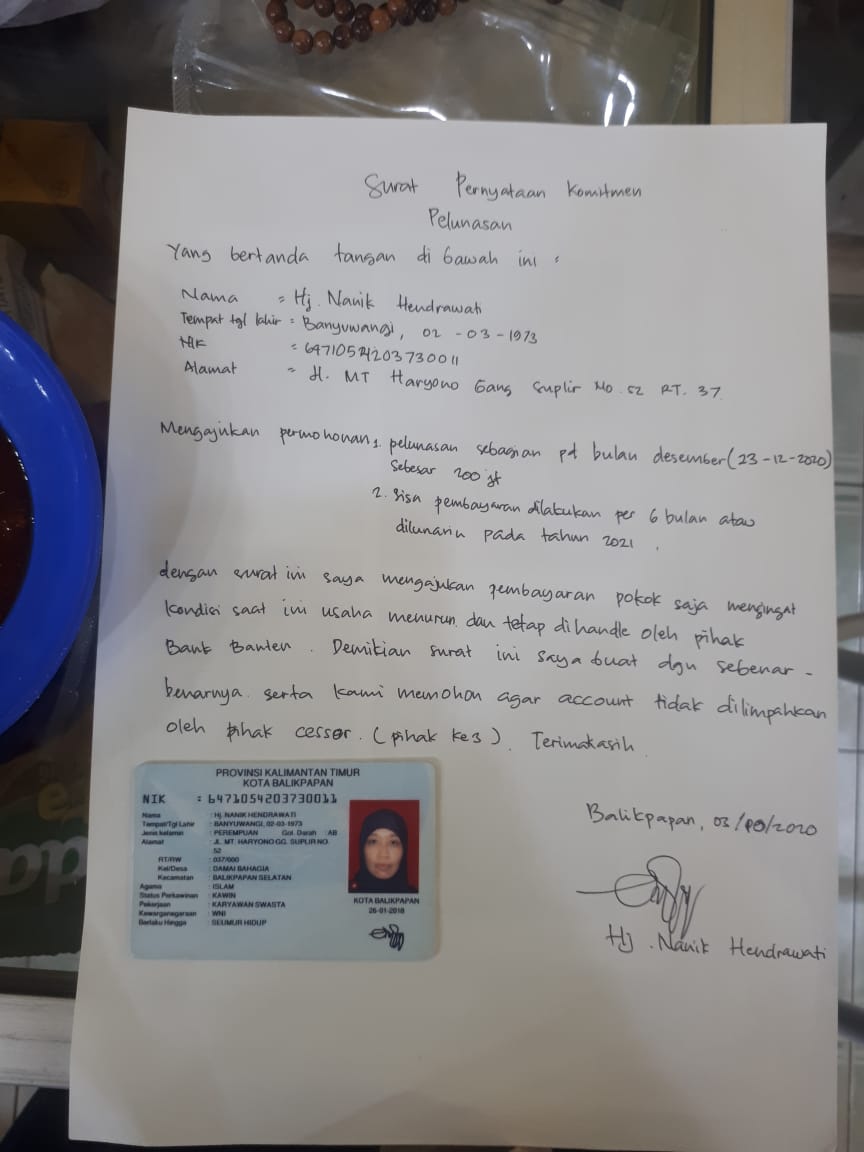 Surat Pernyataan Komitmen
Pelunasan
Yang bertanda tangan di bawah ini :
Nama = Hj. Nanik Hendrawati
Tempat tgl lahir = Banyuwangi, 02 - 03 - 1973
NIK = 6471054203730011
Alamat = Jl. MT Haryono Gang Suplir No. 52 RT. 37
Mengajukan permohonan 1. pelunasan sebagian pd bulan desember (23-12-2020)
sebesar 200 jt
2. sisa pembayaran dilakukan per 6 bulan atau
dilunasin pada tahun 2021.
dengan surat ini saya mengajukan pembayaran pokok saja mengingat
kondisi saat ini usaha menurun dan tetap dihandle oleh pihak
Bank Banten. Demikian surat ini saya buat dgn sebenar -
benarnya serta kami memohon agar account tidak dilimpahkan
oleh pihak cessor. (pihak ke3). Terimakasih.
PROVINSI KALIMANTAN TIMUR
KOTA BALIKPAPAN
NIK : 6471054203730011
Nama : Hj. NANIK HENDRAWATI
Tempat/Tgl Lahir : BANYUWANGI, 02-03-1973
Jenis kelamin : PEREMPUAN Gol. Darah : AB
Alamat : JL. MT. HARYONO GG. SUPLIR NO.
52
RT/RW : 037/000
Kel/Desa : DAMAI BAHAGIA
Kecamatan : BALIKPAPAN SELATAN
Agama : ISLAM
Status Perkawinan : KAWIN
Pekerjaan : KARYAWAN SWASTA
Kewarganegaraan : WNI
Berlaku Hingga : SEUMUR HIDUP
KOTA BALIKPAPAN
26-01-2018
Balikpapan,
Hj. Nanik Hendrawati